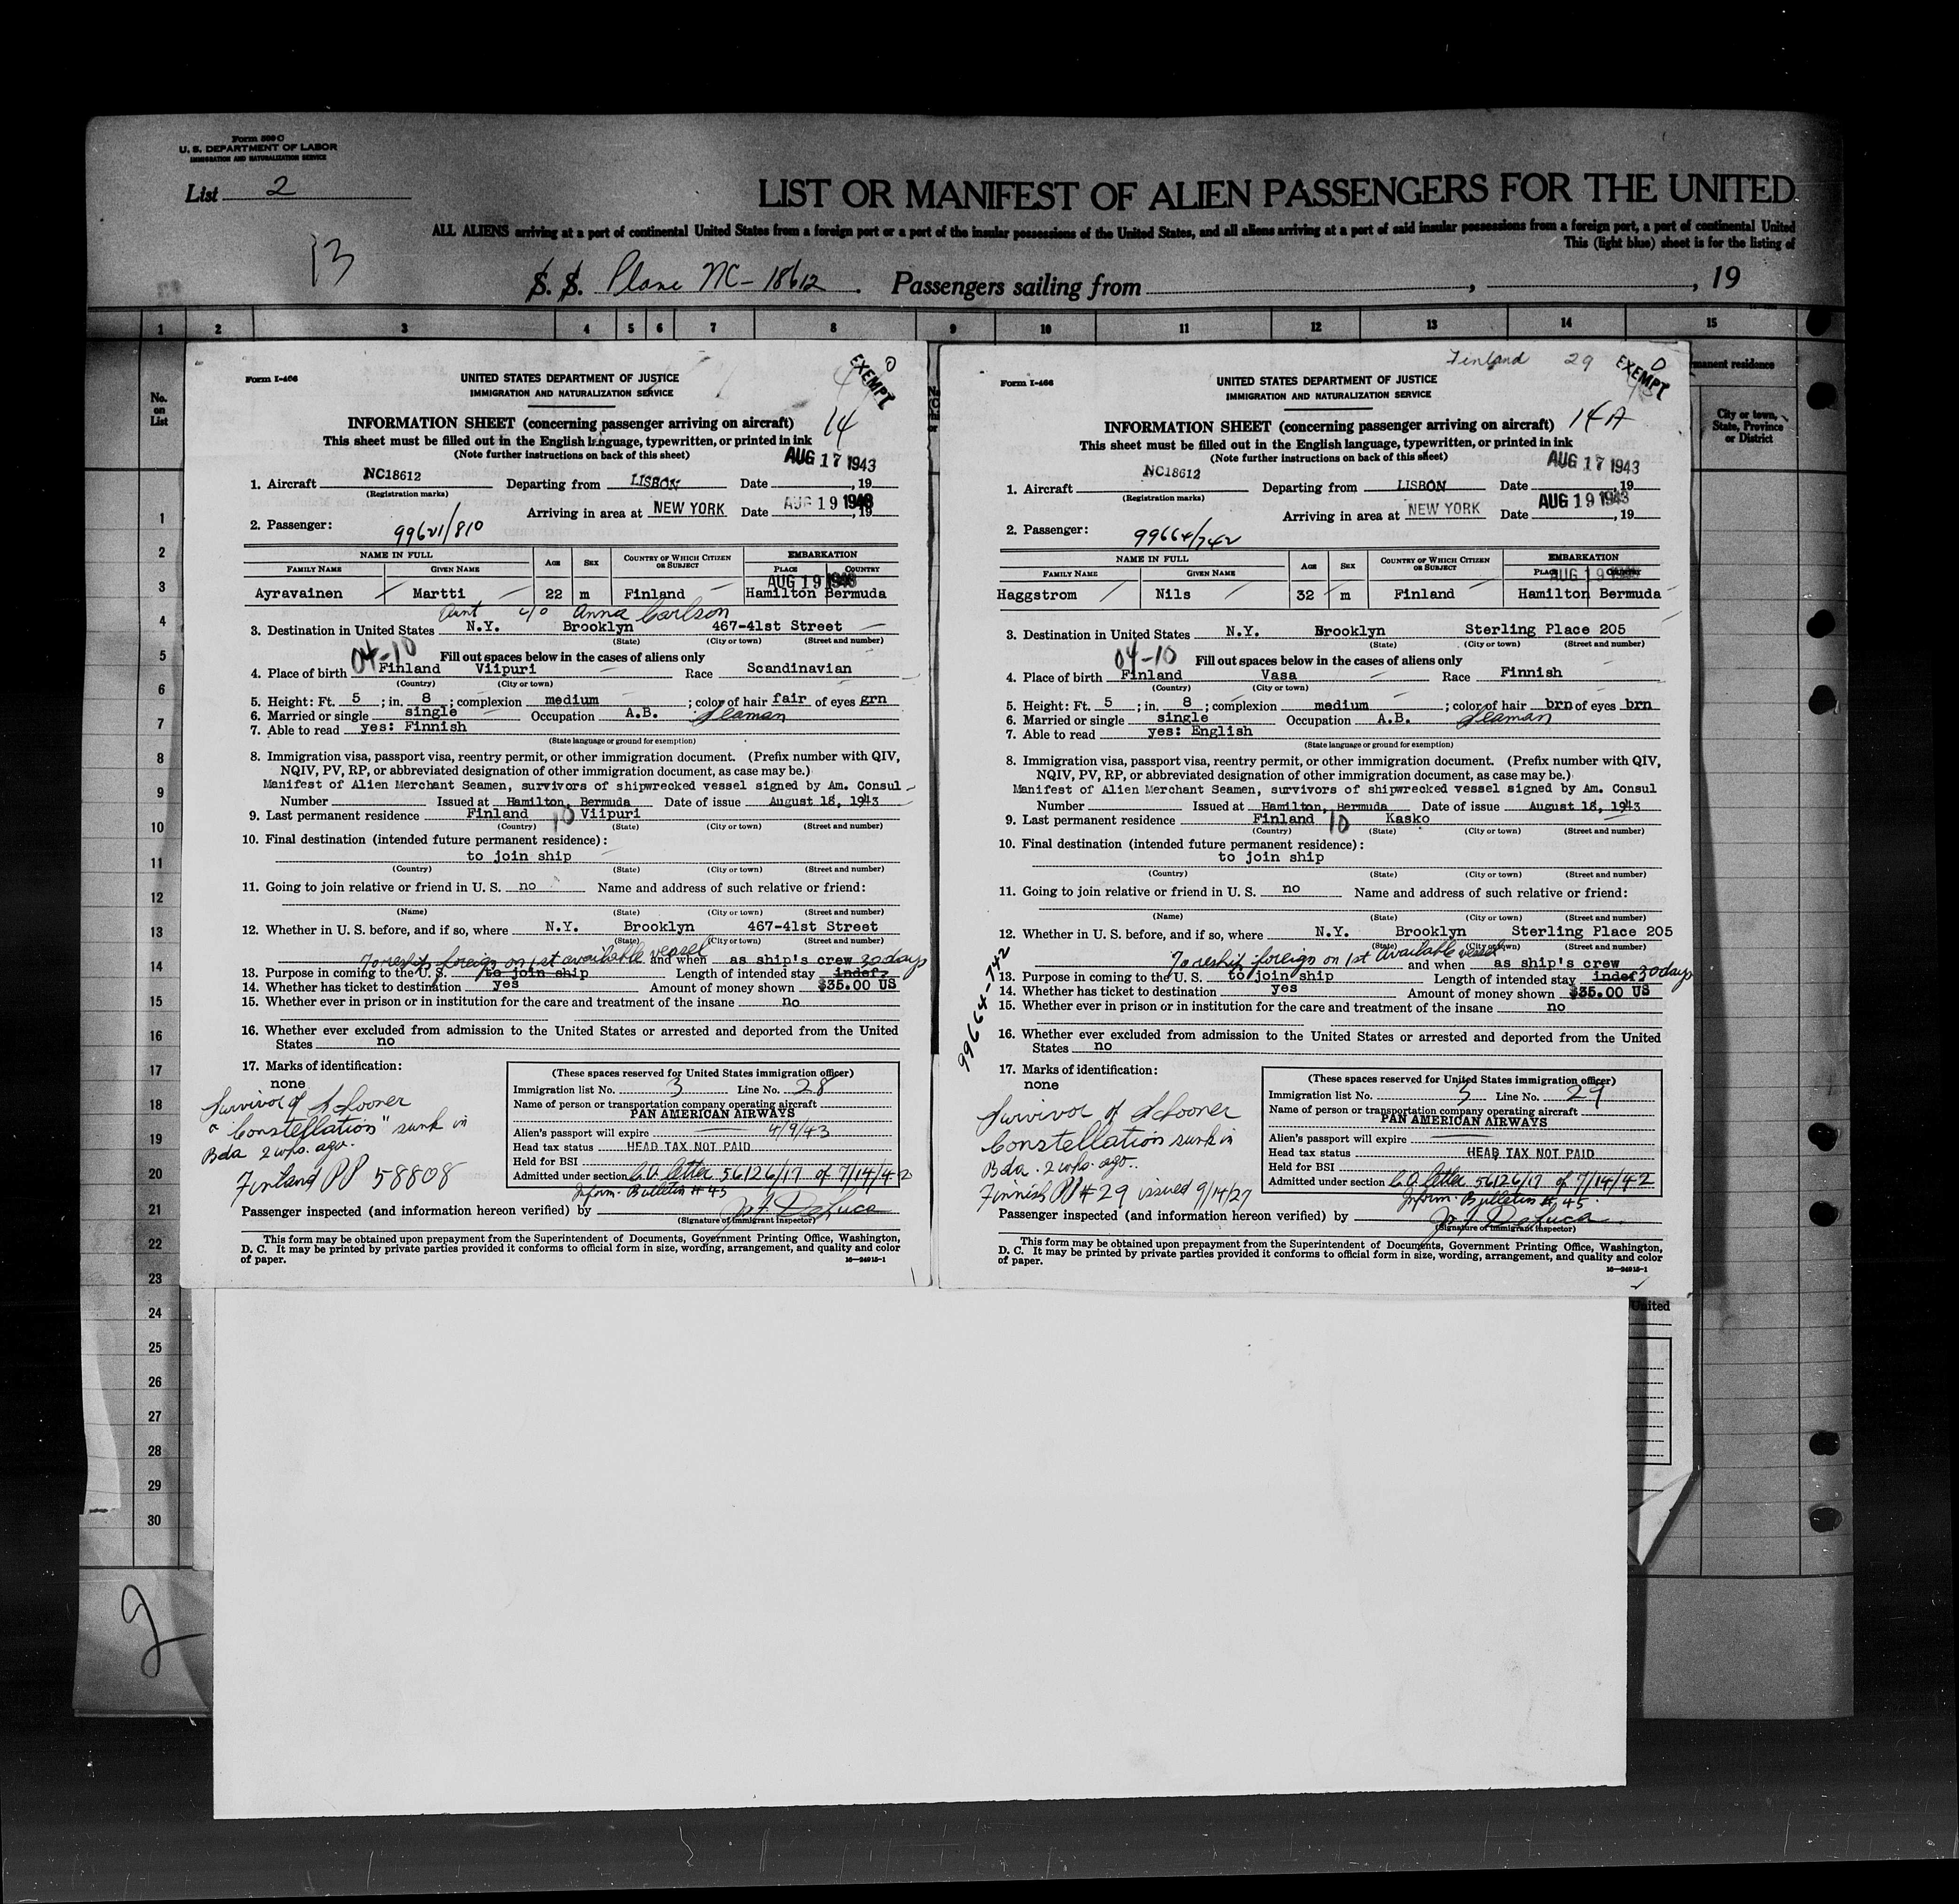 Form 500 C
U. S. DEPARTMENT OF LABOR
IMMIGRATION AND NATURALIZATION SERVICE
List 2
LIST OR MANIFEST OF ALIEN PASSENGERS FOR THE UNITED
ALL ALIENS arriving at a port of continental United States from a foreign port or a port of the insular possessions of the United States, and all aliens arriving at a port of said insular possessions from a foreign port, a port of continental United
This (light blue) sheet is for the listing of
13
S. S. Plane NC-18612. Passengers sailing from , , 19
1 2 3 4 5 6 7 8 9 10 11 12 13 14 15
No. on List
manent residence
City or town, State, Province or District
1
2
3
4
5
6
7
8
9
10
11
12
13
14
15
16
17
18
19
20
21
22
23
24
25
26
27
28
29
30
Form I-466
UNITED STATES DEPARTMENT OF JUSTICE
IMMIGRATION AND NATURALIZATION SERVICE
EXEMPT
0
INFORMATION SHEET (concerning passenger arriving on aircraft)
14
This sheet must be filled out in the English language, typewritten, or printed in ink
(Note further instructions on back of this sheet)
AUG 17 1943
1. Aircraft NC18612 Departing from LISBON Date , 19
(Registration marks)
Arriving in area at NEW YORK Date AUG 19 1943, 19
2. Passenger: 99621/810
NAME IN FULL Age Sex Country of Which Citizen or Subject EMBARKATION
Family Name Given Name Place Country
AUG 19 1943
Ayravainen Martti 22 m Finland Hamilton Bermuda
Aunt c/o Anna Carlson
3. Destination in United States N.Y. Brooklyn 467-41st Street
(State) (City or town) (Street and number)
04-10 Fill out spaces below in the cases of aliens only
4. Place of birth Finland Viipuri Race Scandinavian
(Country) (City or town)
5. Height: Ft. 5 ; in. 8 ; complexion medium ; color of hair fair of eyes grn
6. Married or single single Occupation A.B. Seaman
7. Able to read yes: Finnish
(State language or ground for exemption)
8. Immigration visa, passport visa, reentry permit, or other immigration document. (Prefix number with QIV,
NQIV, PV, RP, or abbreviated designation of other immigration document, as case may be.)
Manifest of Alien Merchant Seamen, survivors of shipwrecked vessel signed by Am. Consul
Number Issued at Hamilton, Bermuda Date of issue August 18, 1943
9. Last permanent residence Finland 10 Viipuri
(Country) (State) (City or town) (Street and number)
10. Final destination (intended future permanent residence):
to join ship
(Country) (State) (City or town) (Street and number)
11. Going to join relative or friend in U. S. no Name and address of such relative or friend:
(Name) (State) (City or town) (Street and number)
12. Whether in U. S. before, and if so, where N.Y. Brooklyn 467-41st Street
(State) (City or town) (Street and number)
To reship foreign on 1st available vessel and when as ship's crew 30 days
13. Purpose in coming to the U. S. to join ship Length of intended stay indef.
14. Whether has ticket to destination yes Amount of money shown $35.00 US
15. Whether ever in prison or in institution for the care and treatment of the insane no
16. Whether ever excluded from admission to the United States or arrested and deported from the United
States no
17. Marks of identification:
none
Survivor of Schooner
"Constellation" sunk in
Bda 2 wks. ago.
Finland PP 58808
(These spaces reserved for United States immigration officer)
Immigration list No. 3 Line No. 28
Name of person or transportation company operating aircraft
PAN AMERICAN AIRWAYS
Alien's passport will expire 4/9/43
Head tax status HEAD TAX NOT PAID
Held for BSI
Admitted under section C.O. letter 56126/17 of 7/14/42
Inform. Bulletin #45
Passenger inspected (and information hereon verified) by J. F. DeLuca
(Signature of immigrant inspector)
This form may be obtained upon prepayment from the Superintendent of Documents, Government Printing Office, Washington,
D. C. It may be printed by private parties provided it conforms to official form in size, wording, arrangement, and quality and color
of paper. 16—24915-1
Form I-466
Finland 29
UNITED STATES DEPARTMENT OF JUSTICE
IMMIGRATION AND NATURALIZATION SERVICE
EXEMPT
0
INFORMATION SHEET (concerning passenger arriving on aircraft)
14A
This sheet must be filled out in the English language, typewritten, or printed in ink
(Note further instructions on back of this sheet)
AUG 17 1943
1. Aircraft NC18612 Departing from LISBON Date , 19
(Registration marks)
Arriving in area at NEW YORK Date AUG 19 1943, 19
2. Passenger: 99664/742
NAME IN FULL Age Sex Country of Which Citizen or Subject EMBARKATION
Family Name Given Name Place Country
AUG 19 1943
Haggstrom Nils 32 m Finland Hamilton Bermuda
3. Destination in United States N.Y. Brooklyn Sterling Place 205
(State) (City or town) (Street and number)
04-10 Fill out spaces below in the cases of aliens only
4. Place of birth Finland Vasa Race Finnish
(Country) (City or town)
5. Height: Ft. 5 ; in. 8 ; complexion medium ; color of hair brn of eyes brn
6. Married or single single Occupation A.B. Seaman
7. Able to read yes: English
(State language or ground for exemption)
8. Immigration visa, passport visa, reentry permit, or other immigration document. (Prefix number with QIV,
NQIV, PV, RP, or abbreviated designation of other immigration document, as case may be.)
Manifest of Alien Merchant Seamen, survivors of shipwrecked vessel signed by Am. Consul
Number Issued at Hamilton, Bermuda Date of issue August 18, 1943
9. Last permanent residence Finland 10 Kasko
(Country) (State) (City or town) (Street and number)
10. Final destination (intended future permanent residence):
to join ship
(Country) (State) (City or town) (Street and number)
11. Going to join relative or friend in U. S. no Name and address of such relative or friend:
(Name) (State) (City or town) (Street and number)
12. Whether in U. S. before, and if so, where N.Y. Brooklyn Sterling Place 205
(State) (City or town) (Street and number)
To reship foreign on 1st available vessel and when as ship's crew
13. Purpose in coming to the U. S. to join ship Length of intended stay indef. 30 days
14. Whether has ticket to destination yes Amount of money shown $35.00 US
15. Whether ever in prison or in institution for the care and treatment of the insane no
99664-742
16. Whether ever excluded from admission to the United States or arrested and deported from the United
States no
17. Marks of identification:
none
Survivor of Schooner
Constellation sunk in
Bda. 2 wks. ago..
Finnish PP #29 issued 9/14/27
(These spaces reserved for United States immigration officer)
Immigration list No. 3 Line No. 29
Name of person or transportation company operating aircraft
PAN AMERICAN AIRWAYS
Alien's passport will expire
Head tax status HEAD TAX NOT PAID
Held for BSI
Admitted under section C.O. letter 56126/17 of 7/14/42
Inform. Bulletin #45
Passenger inspected (and information hereon verified) by J. F. DeLuca
(Signature of immigrant inspector)
This form may be obtained upon prepayment from the Superintendent of Documents, Government Printing Office, Washington,
D. C. It may be printed by private parties provided it conforms to official form in size, wording, arrangement, and quality and color
of paper. 16—24915-1
United
2